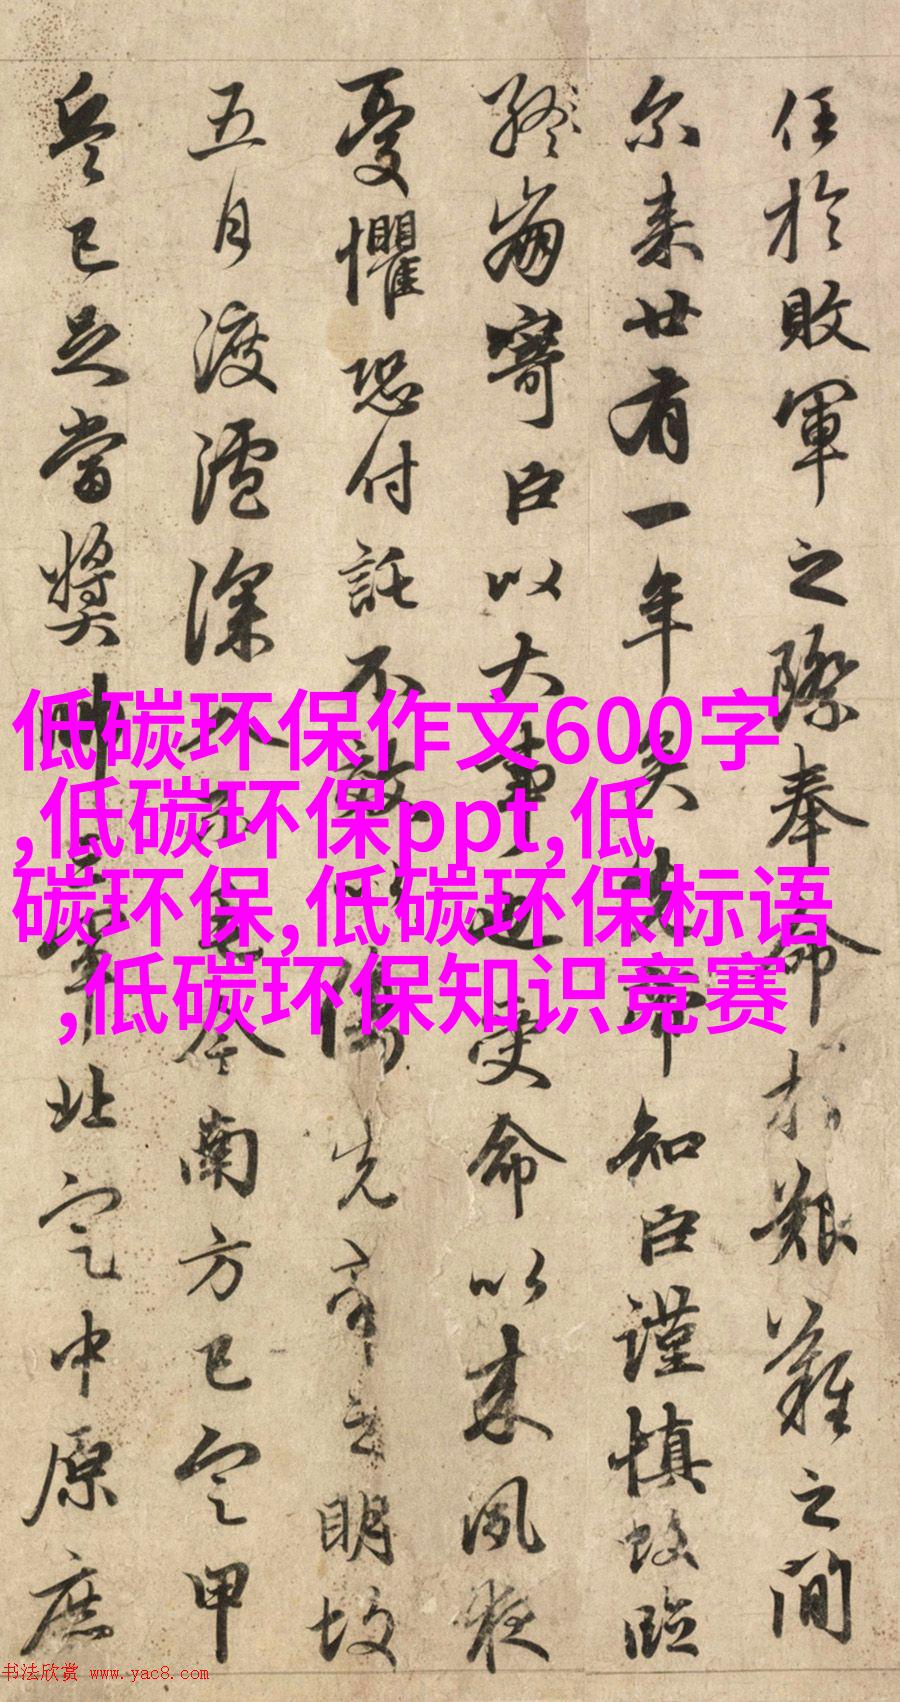 任於敗軍之際奉命於艱難之間
尔来廿有一年矣先帝知臣謹慎故臨
終崩寄臣以大事也受命以来夙夜
憂懼恐付託不效以傷先帝之明故
五月渡瀘深入不毛今南方已定甲
兵已足當獎帥三軍北定中原庶
低碳环保作文600字
,低碳环保ppt,低
碳环保,低碳环保标语
,低碳环保知识竞赛
书法欣赏 www.yac8.com